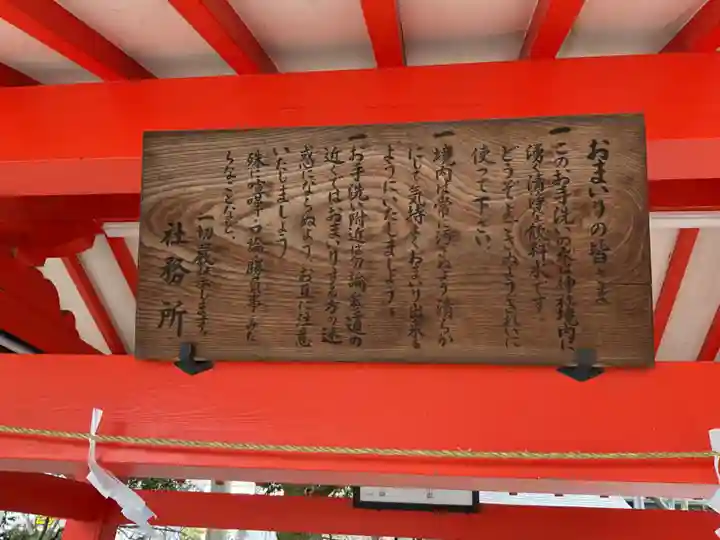 おまいりの皆さま
一このお手洗いの水は神社境内に
湧く清浄な飲料水です。
どうぞよごさぬようきれいに
使って下さい。
一境内は常に汚さぬよう清らか
にして気持よくおまいり出来る
ようにいたしましょう。
一お手洗附近は勿論参道の
近くではおまいりする方の迷
惑にならぬようお互に注意
いたしましょう
殊に喧嘩口論勝負事みだ
らなことなど、
一切厳禁します。
社務所